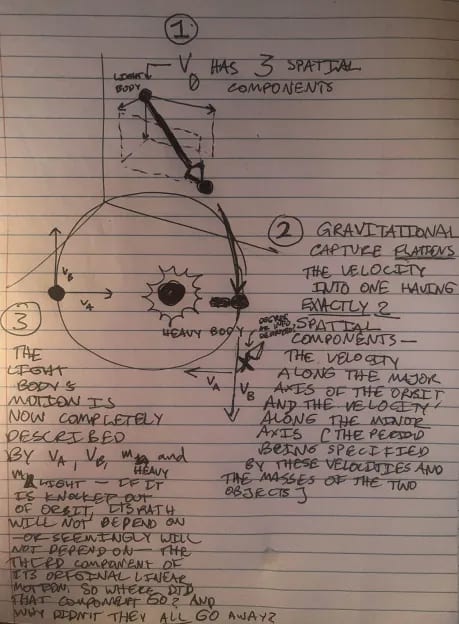 1
LIGHT BODY
V0 HAS 3 SPATIAL
COMPONENTS
2 GRAVITATIONAL
CAPTURE FLATTENS
THE VELOCITY
INTO ONE HAVING
EXACTLY 2
SPATIAL
COMPONENTS—
THE VELOCITY
ALONG THE MAJOR
AXIS OF THE ORBIT
AND THE VELOCITY
ALONG THE MINOR
AXIS (THE PERIOD
BEING SPECIFIED
BY THESE VELOCITIES AND
THE MASSES OF THE TWO
OBJECTS)
VB
VA
HEAVY BODY
DEGREE
OF
VA
VB
3
THE
LIGHT
BODY'S
MOTION IS
NOW COMPLETELY
DESCRIBED
BY VA, VB, m HEAVY and
m LIGHT — IF IT
IS KNOCKED OUT
OF ORBIT, ITS PATH
WILL NOT DEPEND ON
—OR SEEMINGLY WILL
NOT DEPEND ON— THE
THIRD COMPONENT OF
ITS ORIGINAL LINEAR
MOTION. SO WHERE DID
THAT COMPONENT GO? AND
WHY DIDN'T THEY ALL GO AWAY?